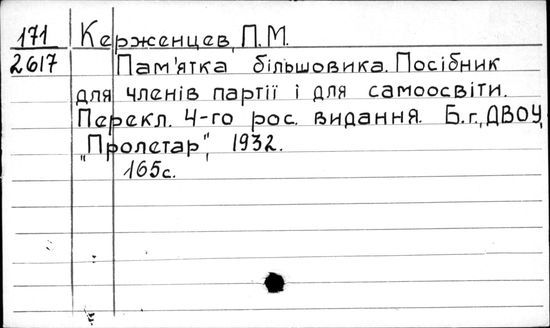 171 Керженцев, П.М.
2617 Пам'ятка більшовика. Посібник
для членів партії і для самоосвіти.
Перекл. 4-го рос. видання. Б.г., ДВОУ,
"Пролетар", 1932.
165с.